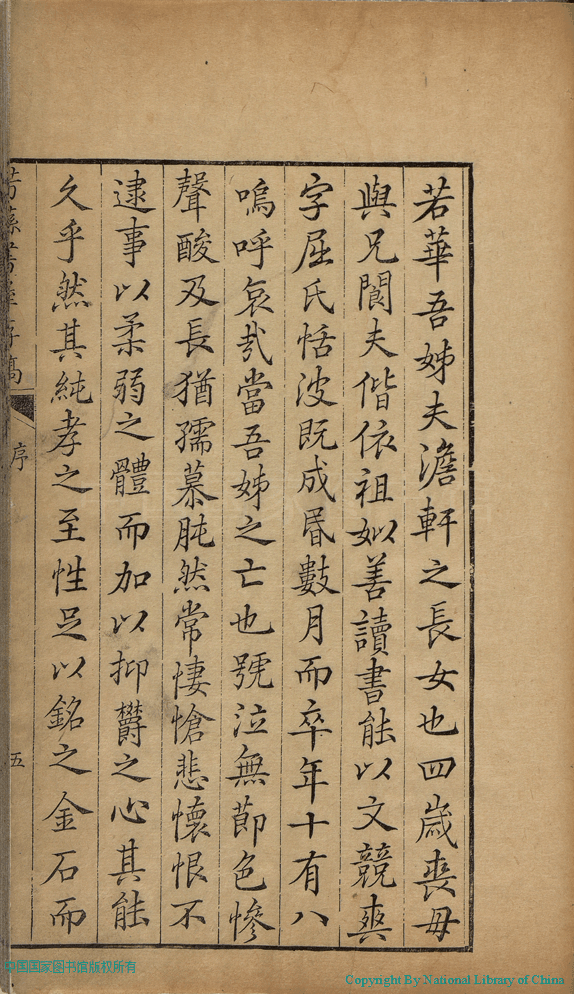 若華吾姊夫澹軒之長女也四歲喪母
與兄閬夫偕依祖姒善讀書能以文競爽
字屈氏恬波既成昬數月而卒年十有八
嗚呼哀哉當吾姊之亡也號泣無節色慘
聲酸及長猶孺慕肫然常悽愴悲懷恨不
逮事以柔弱之體而加以抑欝之心其能
久乎然其純孝之至性足以銘之金石而
序
五
©国国家图书馆版权所有
Copyright By National Library of China